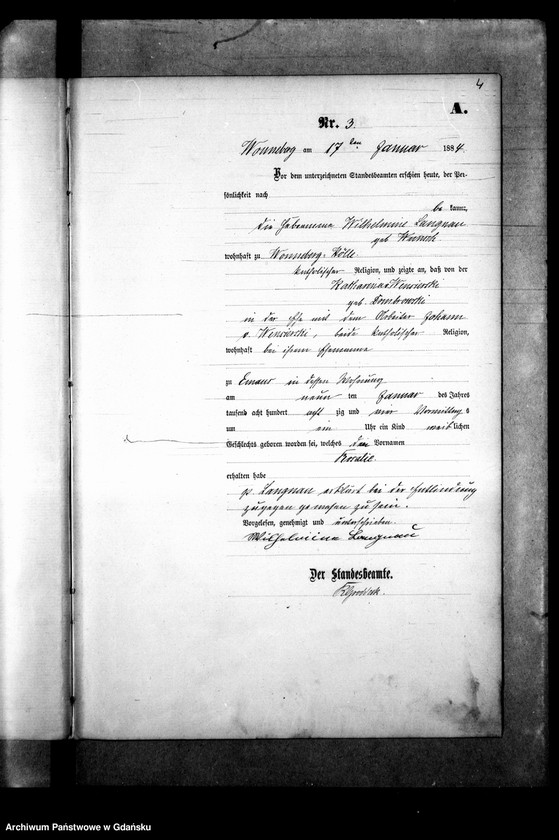 4
A.
Nr. 3.
Wonneberg am 17ten Januar 1884.
Vor dem unterzeichneten Standesbeamten erschien heute, der Per-
sönlichkeit nach
be kannt,
die Hebamme Wilhelmine Langnau
geb
wohnhaft zu Wonneberg-Hölle
katholischer Religion, und zeigte an, daß von der
Katharina Wensierski
geb. Dombrowski
in der Ehe mit dem Arbeiter Johann
v. Wensierski, beide katholischer Religion,
wohnhaft bei ihrem Ehemanne
zu Emaus in dessen Wohnung
am neun ten Januar des Jahres
tausend acht hundert acht zig und vier Vormittag s
um ein Uhr ein Kind weiblichen
Geschlechts geboren worden sei, welches den Vornamen
Rosalie.
erhalten habe
p. Langnau erklärt bei der Entbindung
zugegen gewesen zu sein.
Vorgelesen, genehmigt und unterschrieben.
Wilhelmine Langnau
Der Standesbeamte.
Archiwum Państwowe w Gdańsku